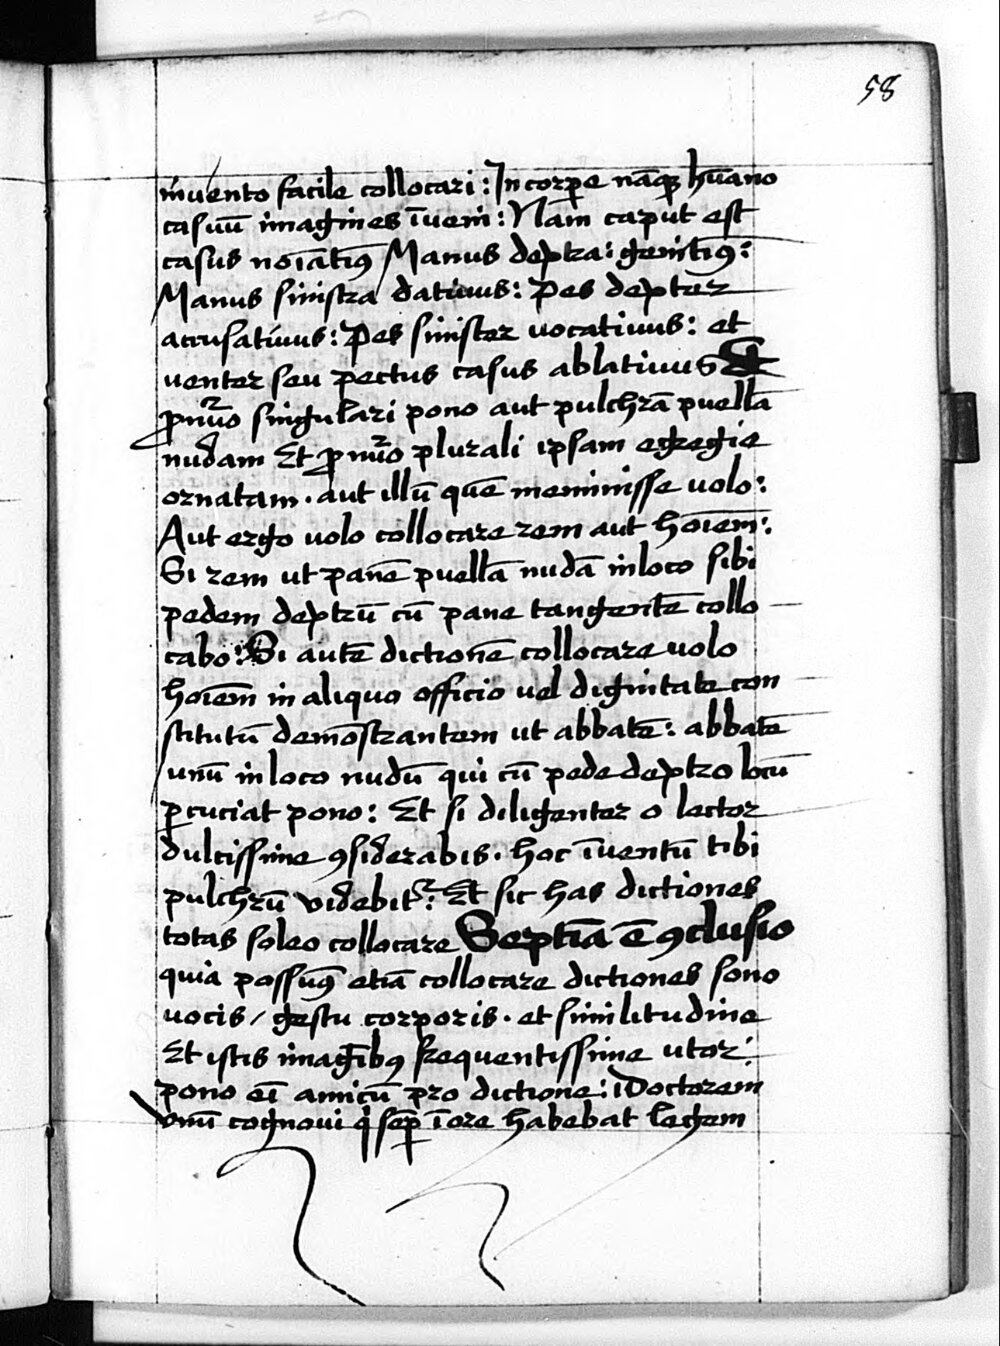 58
invento facile collocari: In corpe nãqꝫ hũano
casuũ imagines ĩueni: Nam caput est
casus noĩatiuꝰ Manus deptra: genitiuꝰ:
Manus sinistra datiuus: Pes depter
accusatiuus: Pes sinister uocatiuus: et
uenter seu pectus casus ablatiuus Et
ꝓ nũo singulari pono aut pulchrã puellã
nudam Et ꝓ nũo plurali ipsam egregie
ornatam. aut illũ quẽ meminisse uolo:
Aut ergo uolo collocare rem aut hoĩem:
Si rem ut panẽ puellã nudã in loco sibi
pedem deptrũ cũ pane tangentẽ collo
cabo: Si autẽ dictionẽ collocare uolo
hoĩem in aliquo officio uel dignitate con
stitutũ demõstrantem ut abbatẽ: abbatẽ
unũ in loco nudũ qui cũ pede deptro locũ
ꝑcuciat pono: Et si diligenter o lector
dulcissime ꝯsiderabis. hoc ĩuentũ tibi
pulchrũ videbit᷑: Et sic has dictiones
totas soleo collocare Septĩa ẽ ꝯclusio
quia possuꝰ etiã collocare dictiones sono
uocis / gestu corporis. et similitudine
Et istis imagĩbꝰ frequentissime utor:
pono eĩ amicũ pro dictione: Doctorem
vnũ cognoui q̇ semꝑ ĩ ore habebat legem